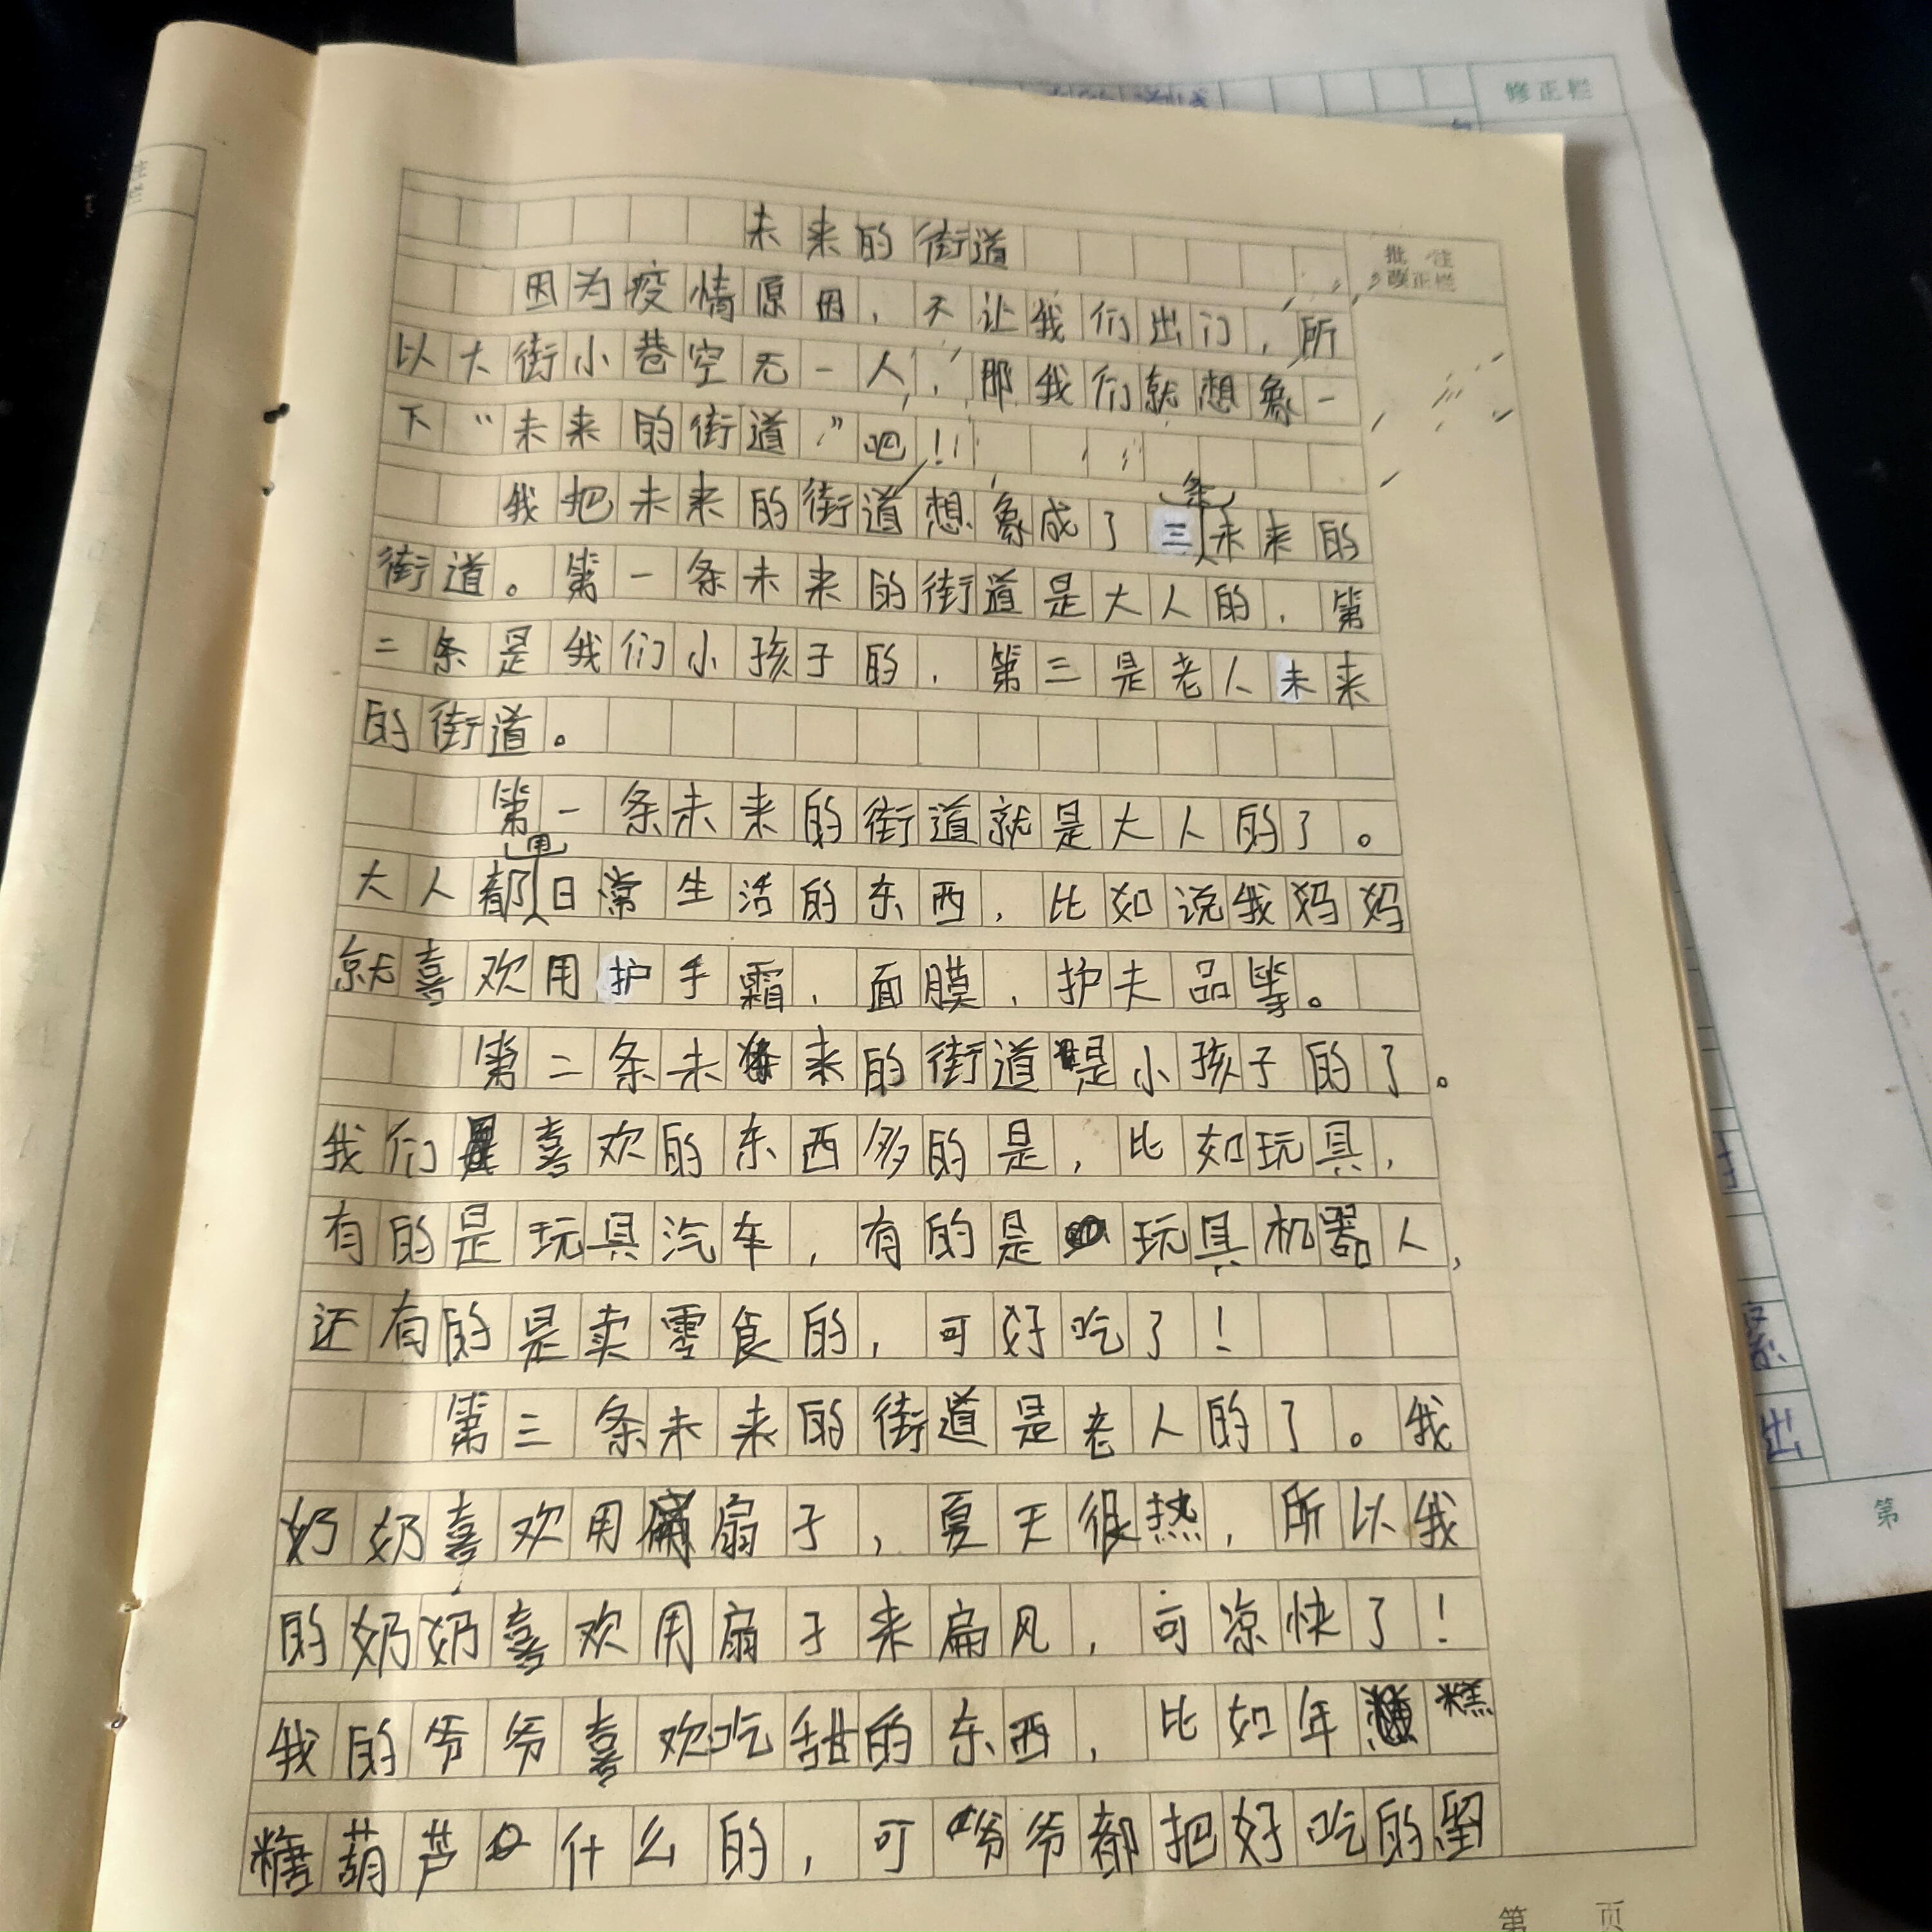 修正栏
未来的街道
批注
改正栏
因为疫情原因，不让我们出门，所
以大街小巷空无一人，那我们就想象一
下“未来的街道，”吧！
我把未来的街道想象成了三条未来的
街道。第一条未来的街道是大人的，第
二条是我们小孩子的，第三是老人未来
的街道。
第一条未来的街道就是大人的了。
大人都用日常生活的东西，比如说我妈妈
就喜欢用护手霜，面膜，护夫品等。
第二条未来的街道是小孩子的了。
我们喜欢的东西多的是，比如玩具，
有的是玩具汽车，有的是玩具机器人，
还有的是卖零食的，可好吃了！
第三条未来的街道是老人的了。我
奶奶喜欢用扇子，夏天很热，所以我
的奶奶喜欢用扇子来扁风，可凉快了！
我的爷爷喜欢吃甜的东西，比如年糕
糖葫芦什么的，可爷爷都把好吃的留
第 页
第
出